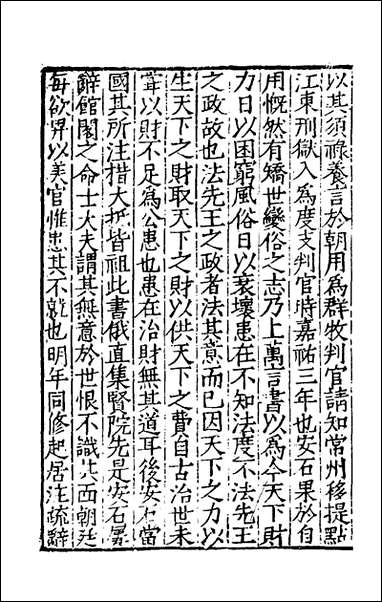 以其須祿養言於朝用爲群牧判官請知常州移提點
江東刑獄入爲度支判官時嘉祐三年也安石果於自
用慨然有矯世變俗之志乃上萬言書以爲今天下財
力日以困窮風俗日以衰壞患在不知法度不法先王
之政故也法先王之政者法其意而已因天下之力以
生天下之財取天下之財以供天下之費自古治世未
甞以財不足爲公患也患在治財無其道耳後安石當
國其所注措大抵皆祖此書俄直集賢院先是安石屢
辭館閣之命士大夫謂其無意於世恨不識其面朝廷
每欲畀以美官惟患其不就也明年同修起居注疏辭